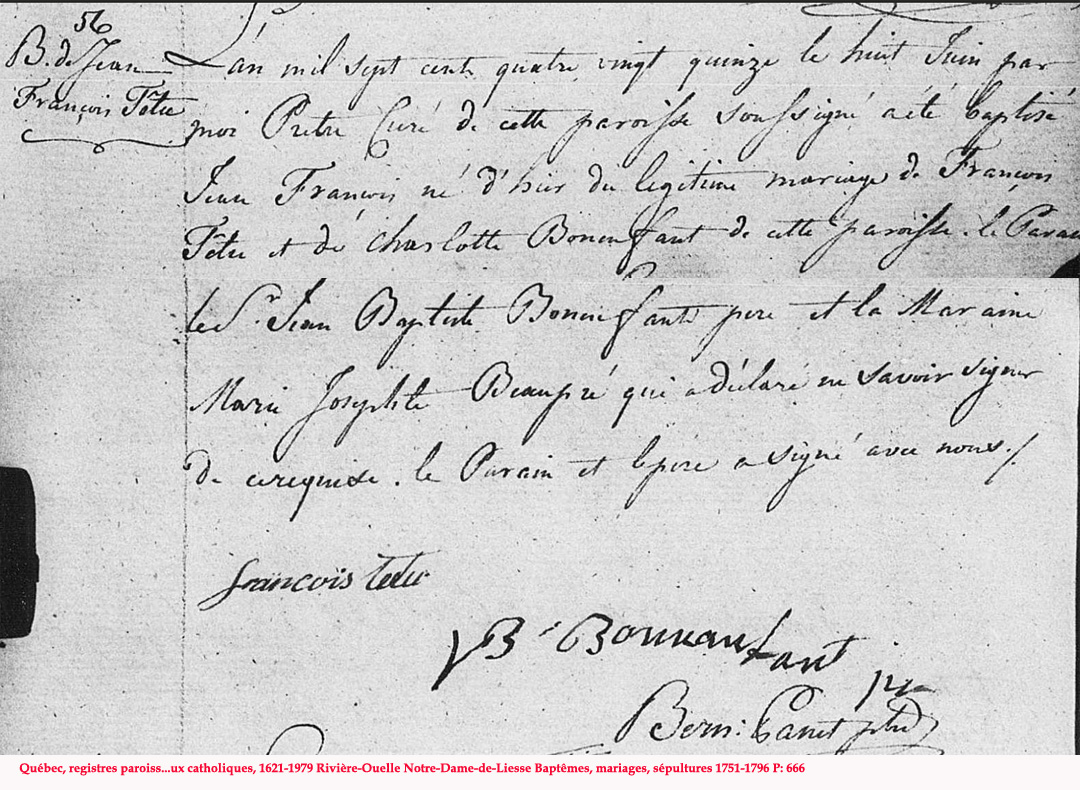 56
B. de Jean
François Têtu
L'an mil sept cent quatre vingt quinze le huit Juin par
moi Prêtre Curé de cette paroisse soussigné a été baptisé
Jean François né d'hier du légitime mariage de François
Têtu et de Charlotte Bonenfant de cette paroisse. le Parain
le Sr. Jean Baptiste Bonenfant pere et la Maraine
Marie Josephte Beaupré qui a déclaré ne savoir signer
de ce requise. le Parain et le pere a signé avec nous ./.
francois tetu
JB Bonnanfant
Bern: Panet ptre
Québec, registres paroiss...ux catholiques, 1621-1979 Rivière-Ouelle Notre-Dame-de-Liesse Baptêmes, mariages, sépultures 1751-1796 P: 666